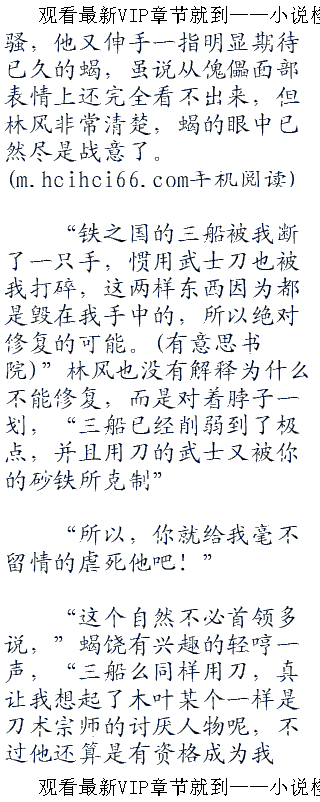 观看最新VIP章节就到——小说检
骚，他又伸手一指明显期待
已久的蝎，虽说从傀儡面部
表情上还完全看不出来，但
林风非常清楚，蝎的眼中已
然尽是战意了。
(m.hcihci66.com手机阅读)
“铁之国的三船被我断
了一只手，惯用武士刀也被
我打碎，这两样东西因为都
是毁在我手中的，所以绝对
修复的可能。(有意思书
院)”林风也没有解释为什么
不能修复，而是对着脖子一
划，“三船已经削弱到了极
点，并且用刀的武士又被你
的砂铁所克制”
“所以，你就给我毫不
留情的虐死他吧！”
“这个自然不必首领多
说，”蝎饶有兴趣的轻哼一
声，“三船么同样用刀，真
让我想起了木叶某个一样是
刀术宗师的讨厌人物呢，不
过他还算是有资格成为我
观看最新VIP章节就到——小说检